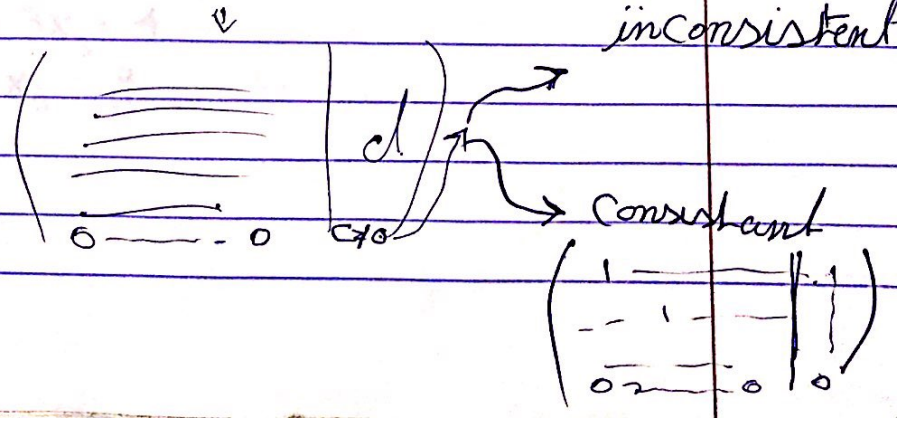 inconsistent
d
0 ---- - 0 C≠0
Consistant
1 1
1
0 0 0